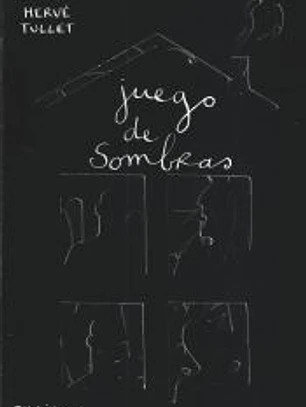 HERVÉ
TULLET
juego
de
Sombras